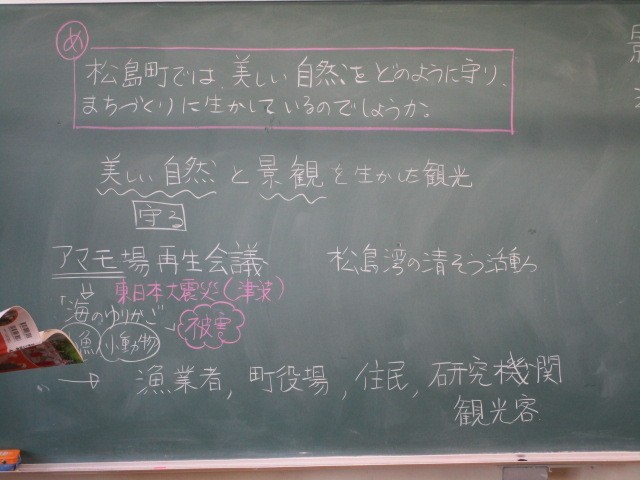 め
松島町では、美しい自然をどのように守り、
まちづくりに生かしているのでしょうか。
美しい自然と景観を生かした観光
守る
アマモ場再生会議
松島湾の清そう活動
東日本大震災(津波)
「海のゆりかご」
被害
魚 小動物
→ 漁業者, 町役場, 住民, 研究機関
観光客